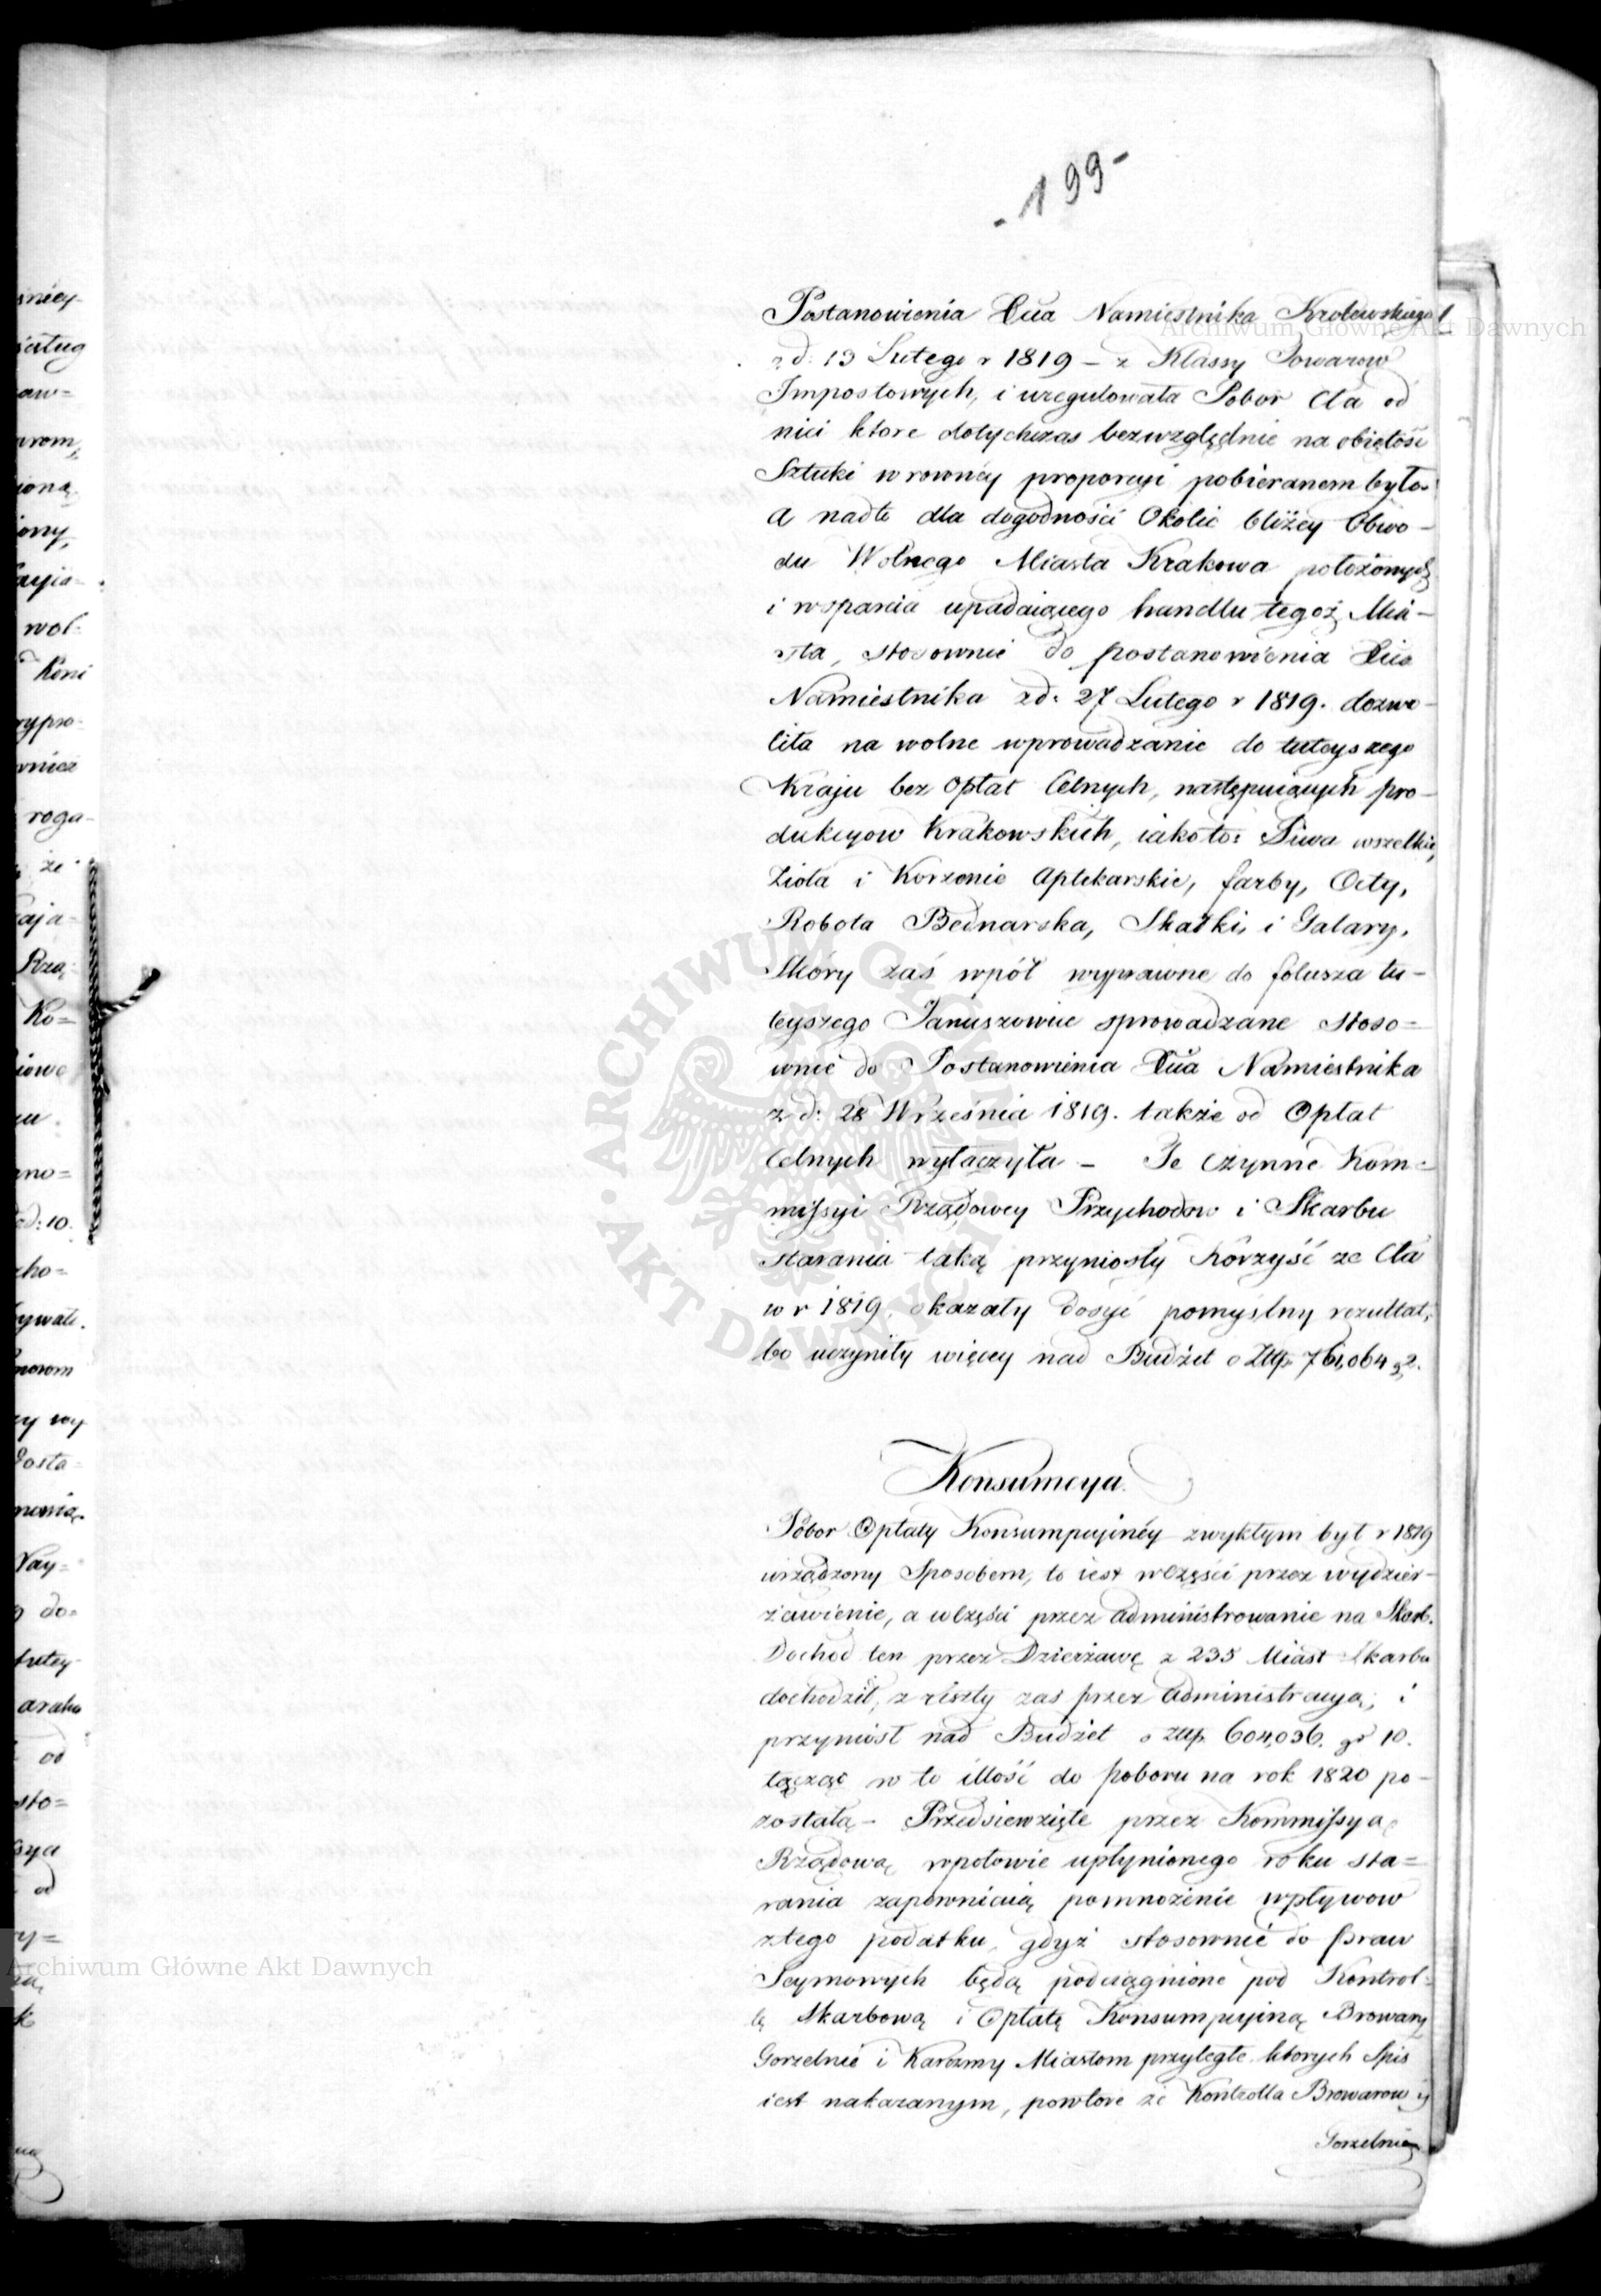 - 199 -
Postanowienia Xcia Namiestnika Krolewskiego
z d: 13 Lutego r 1819 – z Klassy Towarow
Impostowych, i uregulowała Pobor Cła od
nici ktore dotychczas bezwzględnie na obiętość
Sztuki w rowney proporcyi pobieranem było.
A nadto dla dogodności Okolic bliżey Obwo-
du Wolnego Miasta Krakowa położonych
i wsparcia upadaiącego handlu tegoż Mia-
sta, stosownie do postanowienia Xcia
Namiestnika z d: 27 Lutego r 1819. dozwo-
liła na wolne wprowadzanie do tuteyszego
Kraju bez Opłat Celnych, następuiących pro-
dukcyow Krakowskich, iako to: Piwa wszelkie,
Zioła i Korzenie Aptekarskie, farby, Octy,
Robota Bednarska, Skałki, i Galary,
Skóry zaś wpół wyprawne do folusza tu-
teyszego Januszowice sprowadzane stoso-
wnie do Postanowienia Xcia Namiestnika
z d: 28 Września 1819. także od Opłat
Celnych wyłączyła – Te czynne Kom-
missyi Rządowey Przychodow i Skarbu
starania taką przyniosły Korzyść ze Cła
w r 1819. okazały dosyć pomyślny rezultat,
bo uczyniły więcey nad Budżet o Złłp. 761,064 g 2.
Konsumcya.
Pobor Opłaty Konsumpcyiney zwykłym był r 1819
urządzony Sposobem, to iest w części przez wydzier-
żawienie, a w części przez administrowanie na Skarb.
Dochod ten przez Dzierżawę z 235 Miast Skarbu
dochodził, z reszty zaś przez administracyą, i
przyniosł nad Budżet o złłp. 604,036. gr 10.
łącząc w to illość do poboru na rok 1820 po-
zostałą – Przedsiewzięte przez Kommissyą
Rządową w połowie upłynionego roku sta-
rania zapewniaią pomnożenie wpływow
z tego podatku, gdyż stosownie do praw
Seymowych będą podciągnione pod Kontrol-
lę Skarbową i Opłatę Konsumpcyiną Browary
Gorzelnie i Karczmy Miastom przyległe, ktorych Spis
iest nakazanym, powtore że Kontrolla Browarow y
Gorzelnią
Archiwum Główne Akt Dawnych
Archiwum Główne Akt Dawnych
ARCHIWUM GŁÓWNE AKT DAWNYCH